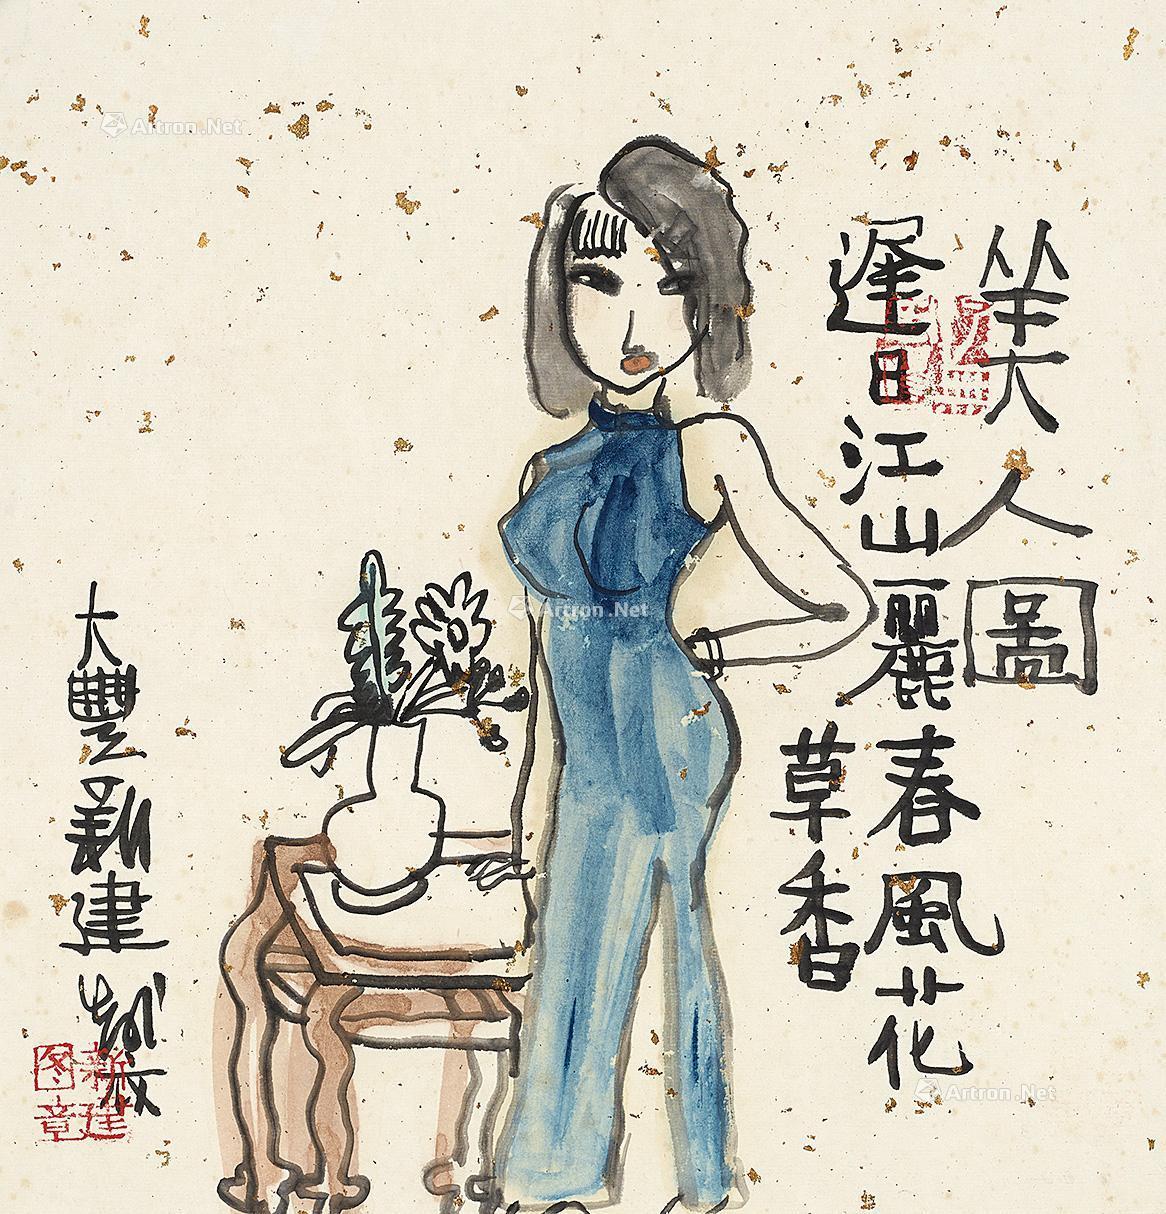 美人圖
遲日江山麗春風花
草香
大豐新建
新建
图章
Artron.Net
Artron.Net
Artron.Net